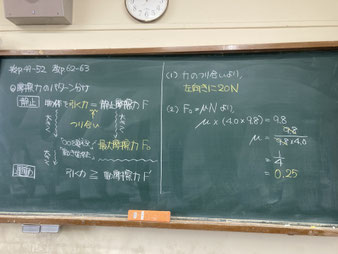 教p.49-52 教p.62-63
◎摩擦力のパターン分け
静止 物体を引く力 = 静止摩擦力 F
つり合い
大 大
最大摩擦力 F₀
運動 引く力 ≧ 動摩擦力 F'
(1) 力のつり合いより、
左向きに20N
(2) F₀ = μN より、
μ × (4.0×9.8) = 9.8
μ = 9.8 / 9.8×4.0
= 1/4
= 0.25